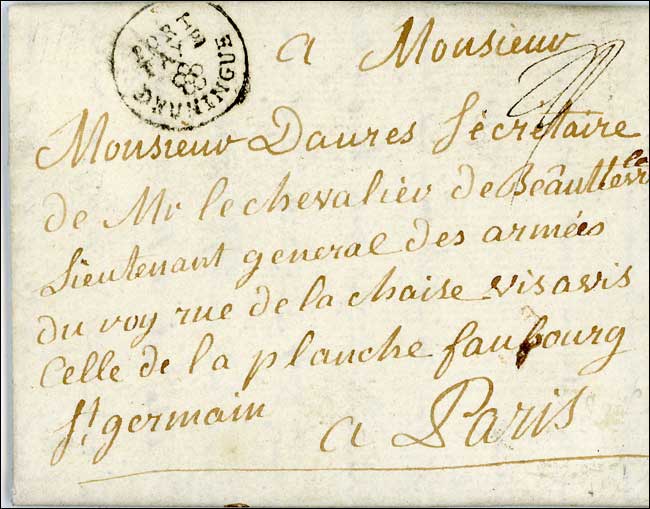 PORT PAYÉ
HUNINGUE
a Monsieur
Monsieur Daures Sécrétaire
de Mr le chevalier de
Lieutenant general des armées
du roy rue de la chaise visavis
Celle de la planche faubourg
St germain a Paris